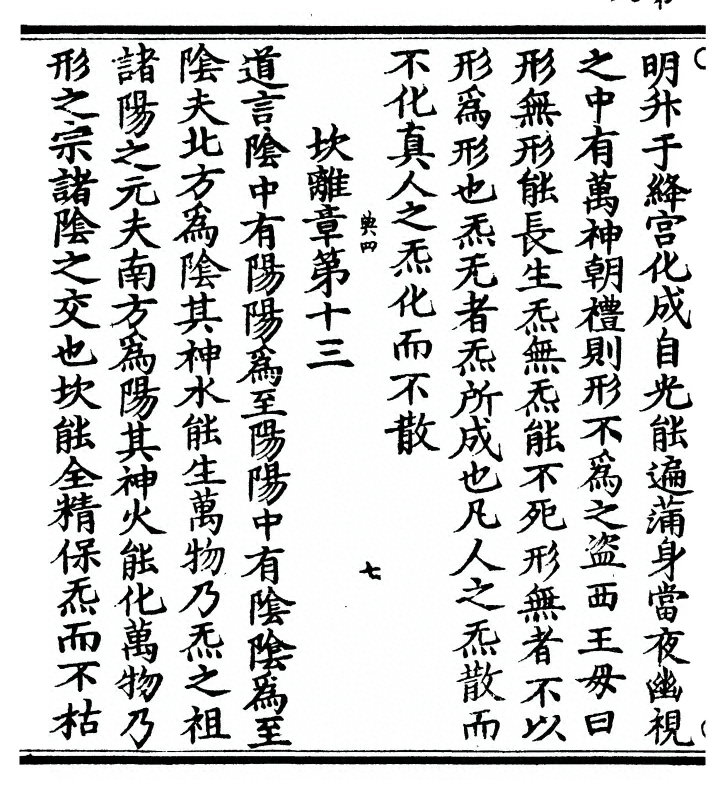 明升于絳宫化成自光能遍蒲身當夜幽視
之中有萬神朝禮則形不爲之盗西王毋曰
形無形能長生炁無炁能不死形無者不以
形爲形也炁无者炁所成也凡人之炁散而
不化真人之炁化而不散
典四
七
坎離章第十三
道言陰中有陽陽爲至陽陽中有陰陰爲至
陰夫北方爲陰其神水能生萬物乃炁之祖
諸陽之元夫南方爲陽其神火能化萬物乃
形之宗諸陰之交也坎能全精保炁而不枯